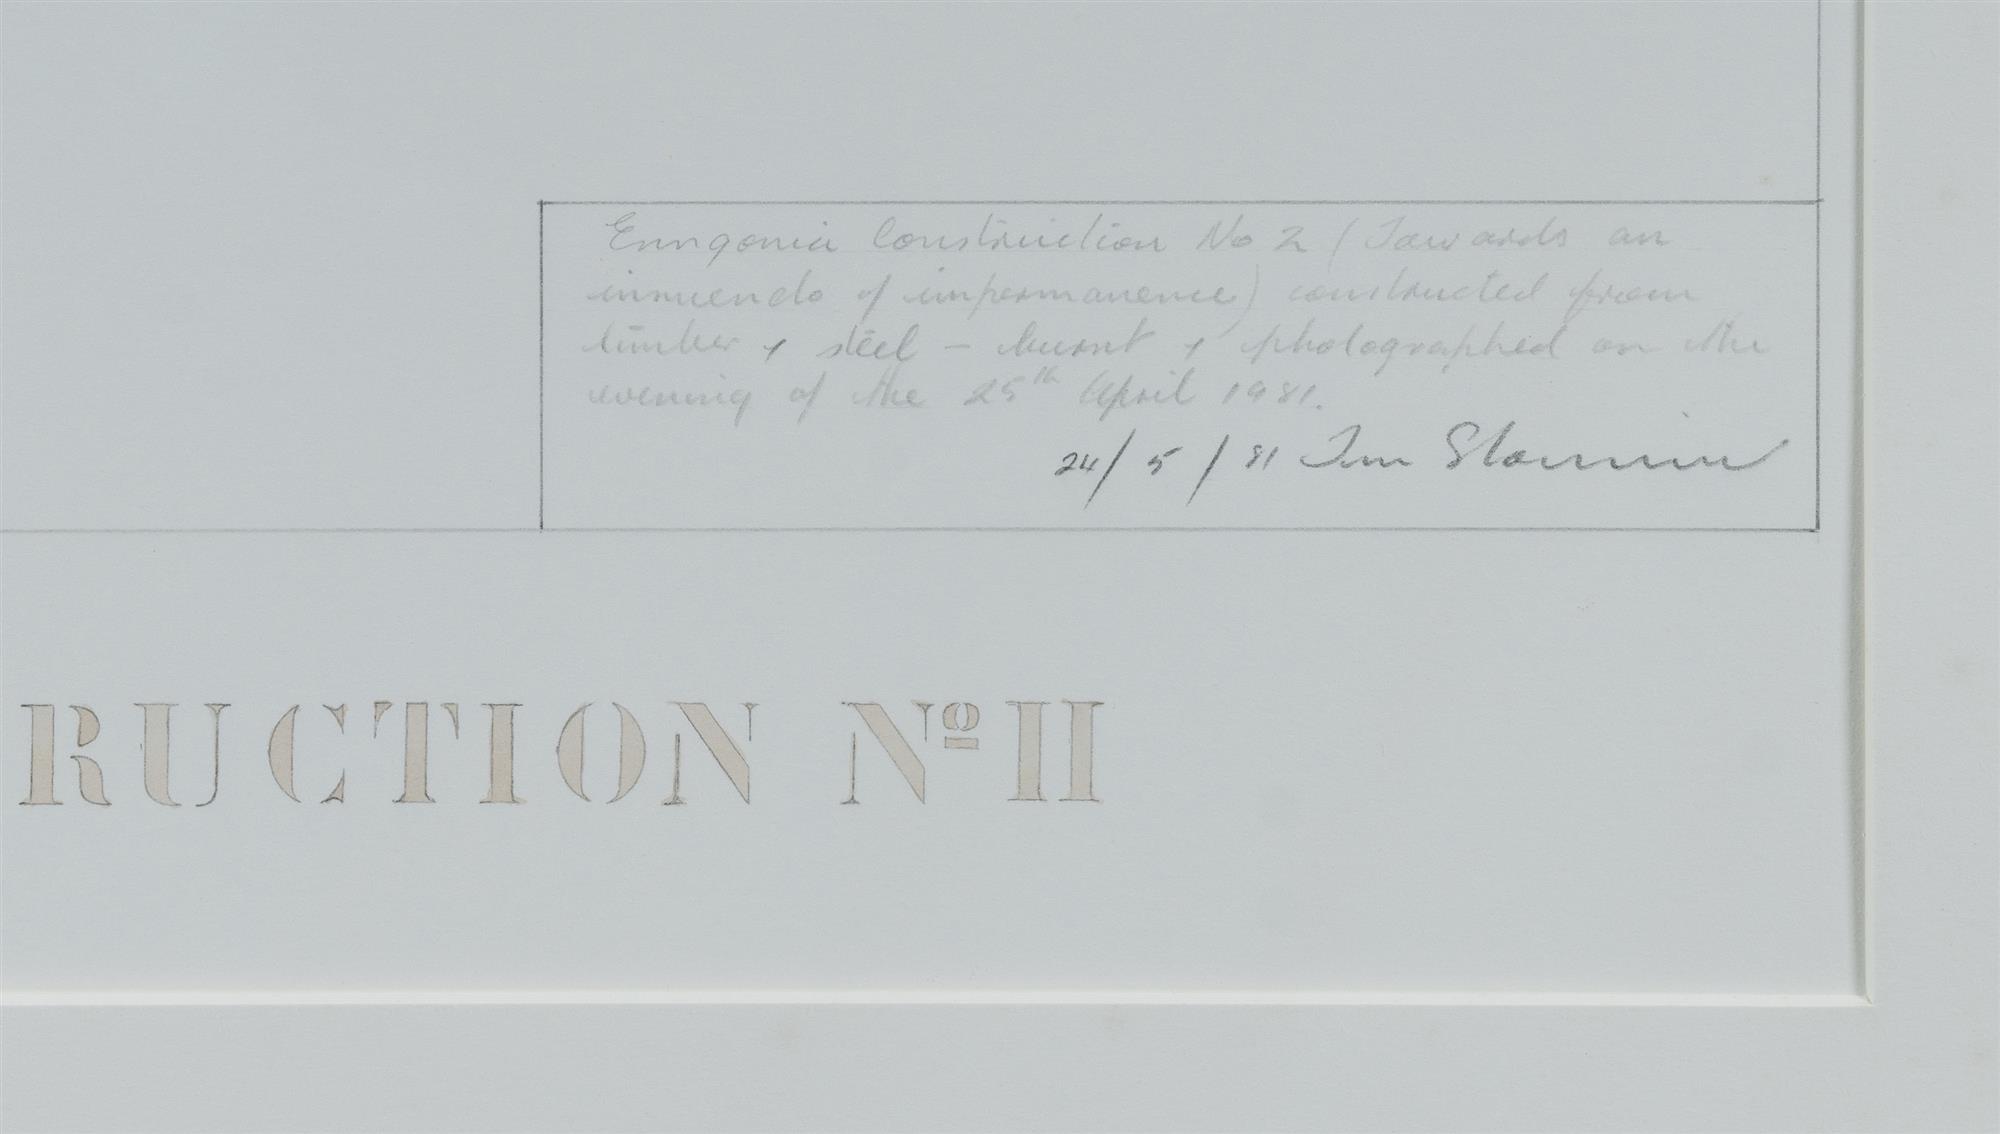 Enngonia Construction No 2 (Towards an
innuendo of impermanence) constructed from
timber + steel – burnt + photographed on the
evening of the 25th April 1981.
24/5/81 Tim Storrier
RUCTION Nº II